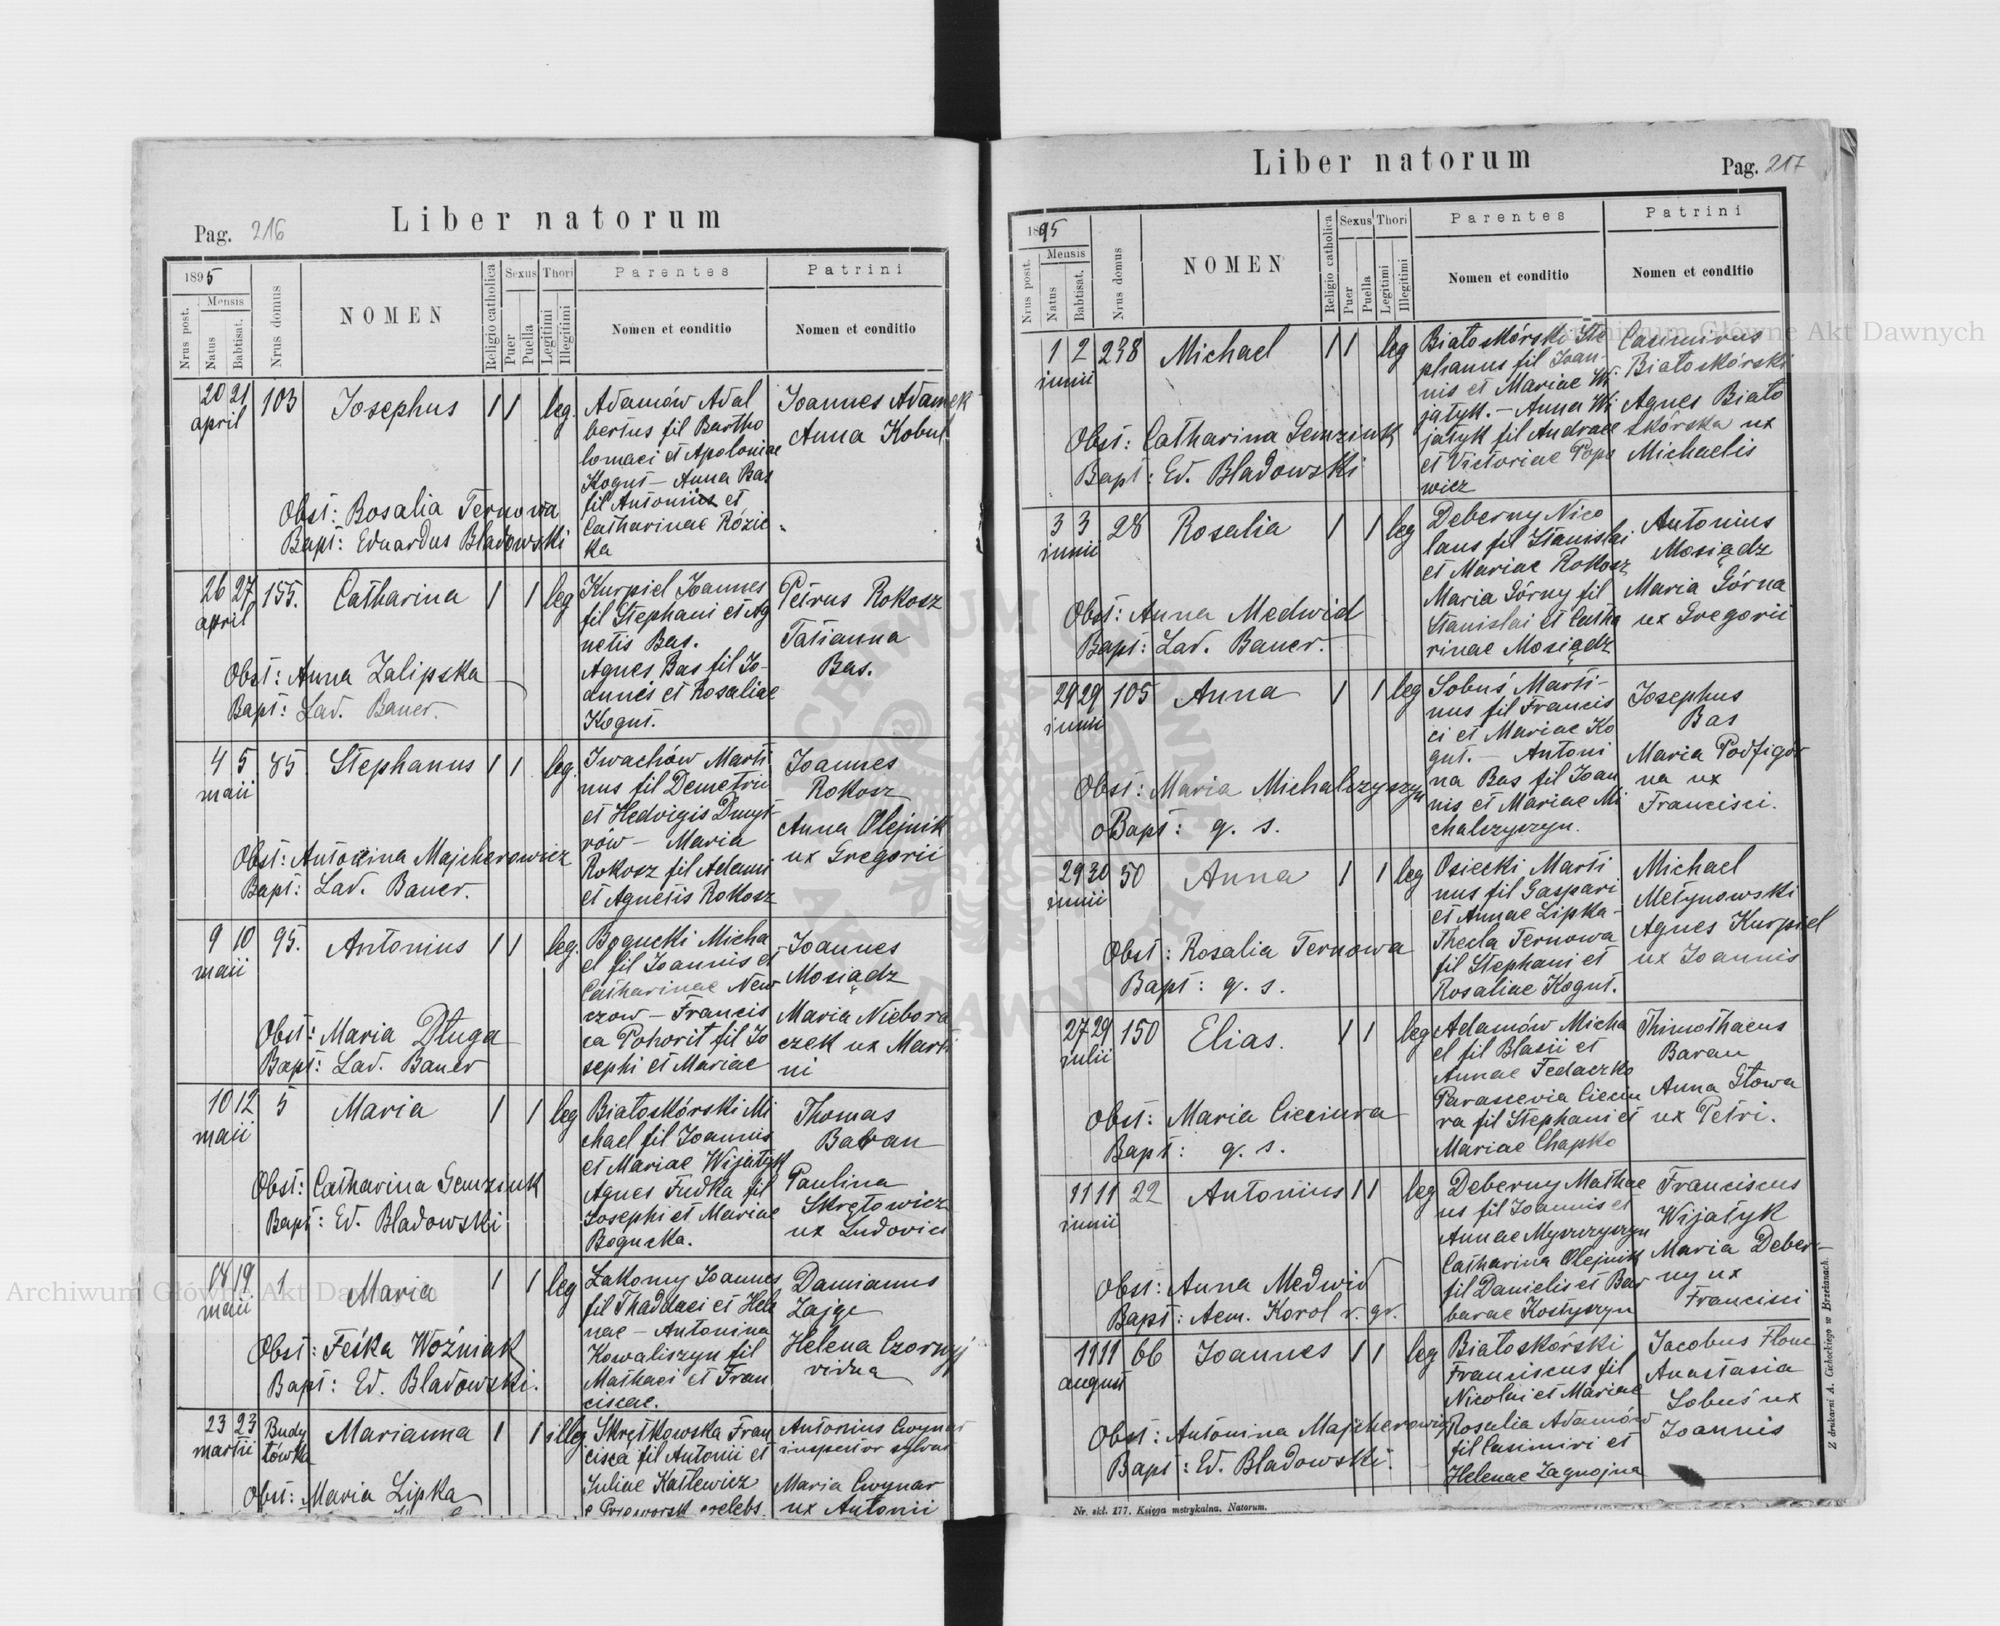 Pag. 216
Liber natorum
1895
Nrus post.
Mensis
Natus
Babtisat.
Nrus domus
NOMEN
Religio catholica
Sexus
Puer
Puella
Thori
Legitimi
Illegitimi
Parentes
Nomen et conditio
Patrini
Nomen et conditio
20 21 april 103 Josephus 1 1 leg.
Adamów Adal
bertus fil Bartho
lomaei et Apoloniae
Kogut — Anna Bas
fil Antonii et
Catharinae Rózic
ka
Joannes Adamek
Anna Kobut
Obst: Rosalia Ternowa
Bapt: Eduardus Bladowski
26 27 april 155. Catharina 1 1 leg
Kurpiel Joannes
fil Stephani et Ag
netis Bas.
Agnes Bas fil Jo-
annis et Rosaliae
Kogut.
Petrus Rokosz
Tatianna
Bas.
Obst: Anna Zalipska
Bapt: Lad. Bauer.
4 5 maii 85 Stephanus 1 1 leg.
Iwachów Marti
nus fil Demetrii
et Hedvigis Dmyt-
rów — Maria
Rokosz fil Adami
et Agnetis Rokosz
Joannes
Rokosz
Anna Olejnik
ux Gregorii
Obst: Antonina Majcherowicz
Bapt: Lad. Bauer.
9 10 maii 95. Antonius 1 1 leg.
Bogucki Micha
el fil Joannis et
Catharinae New
czow — Francis
ca Pohorit fil Jo
sephi et Mariae
Joannes
Mosiądz
Maria Niebora
czek ux Marti
ni
Obst: Maria Długa
Bapt: Lad. Bauer
10 12 maii 5 Maria 1 1 leg
Białoskórski Mi
chael fil Joannis
et Mariae Wijatyk
Agnes Fudka fil
Josephi et Mariae
Bogucka.
Thomas
Baran
Paulina
Skrętowicz
ux Ludovici
Obst: Catharina Gemziuk
Bapt: Ed. Bladowski
18 19 maii 1 Maria 1 1 leg
Łakomy Joannes
fil Thaddaei et Hele
nae — Antonina
Kowaliszyn fil
Mathaei et Fran
ciscae.
Damianus
Zając
Helena Czornyj
vidua
Obst: Feśka Woźniak
Bapt: Ed. Bladowski.
23 23 martii Budy
łówka Marianna 1 1 illeg
Skrętkowska Fran
cisca fil Antonii et
Juliae Katlewicz
Antonius Cwynar
inspector sylvar
Maria Cwynar
ux Antonii
Obst: Maria Lipka
Liber natorum
Pag. 217
1895
Nrus post.
Mensis
Natus
Babtisat.
Nrus domus
NOMEN
Religio catholica
Sexus
Puer
Puella
Thori
Legitimi
Illegitimi
Parentes
Nomen et conditio
Patrini
Nomen et conditio
1 2 iunii 238 Michael 1 1 leg
Białoskórski Ste
phanus fil Joan-
nis et Mariae Wi
jatyk. — Anna Wi
jatyk fil Andreae
et Victoriae Popo
wicz
Casimirus
Białoskórski
Agnes Biało
skórska ux
Michaelis
Obst: Catharina Gemziuk
Bapt: Ed. Bladowski
3 3 iunii 28 Rosalia 1 1 leg
Deberny Nico
laus fil Stanislai
et Mariae Rokosz
Maria Górny fil
Stanislai et Catha
rinae Mosiądz
Antonius
Mosiądz
Maria Górna
ux Gregorii
Obst: Anna Medwid
Bapt: Lad. Bauer.
29 29 iunii 105 Anna 1 1 leg
Sobuś Marti-
nus fil Francis
ci et Mariae Ko
gut. — Antoni
na Bas fil Joan
nis et Mariae Mi
chalczyszyn.
Josephus
Bas
Maria Podfigór
na ux
Francisci.
Obst: Maria Michalczyszyn
Bapt: q. s.
29 30 iunii 50 Anna 1 1 leg
Osiecki Marti
nus fil Gaspari
et Annae Lipka -
Thecla Ternowa
fil Stephani et
Rosaliae Kogut.
Michael
Metynowski
Agnes Kurpiel
ux Joannis
Obst: Rosalia Ternowa
Bapt: q. s.
27 29 iulii 150 Elias. 1 1 leg
Adamów Micha
el fil Blasii et
Annae Fedaczko
Parascevia Cieciu
ra fil Stephani et
Mariae Chapko
Thimothaeus
Baran
Anna Głowa
ux Petri.
Obst: Maria Cieciura
Bapt: q. s.
11 11 iunii 22 Antonius 1 1 leg
Deberny Mathae
us fil Joannis et
Annae Myszczyszyn
Catharina Olejnik
fil Danielis et Bar
barae Kostyszyn
Franciscus
Wijatyk
Maria Deber-
ny ux
Francisci
Obst: Anna Medwid
Bapt: Aem. Korol r. gr.
11 11 august 66 Joannes 1 1 leg
Białoskórski
Franciscus fil
Nicolai et Mariae
Rosalia Adamów
fil Casimiri et
Helenae Zagnojna
Jacobus Flouc
Anastasia
Sobuś ux
Joannis
Obst: Antonina Majcherowicz
Bapt: Ed. Bladowski.
Nr. skł. 177. Księga metrykalna. Natorum.
Z drukarni A. Cichockiego w Brzeżanach.
Archiwum Główne Akt Dawnych
Archiwum Główne Akt Dawnych